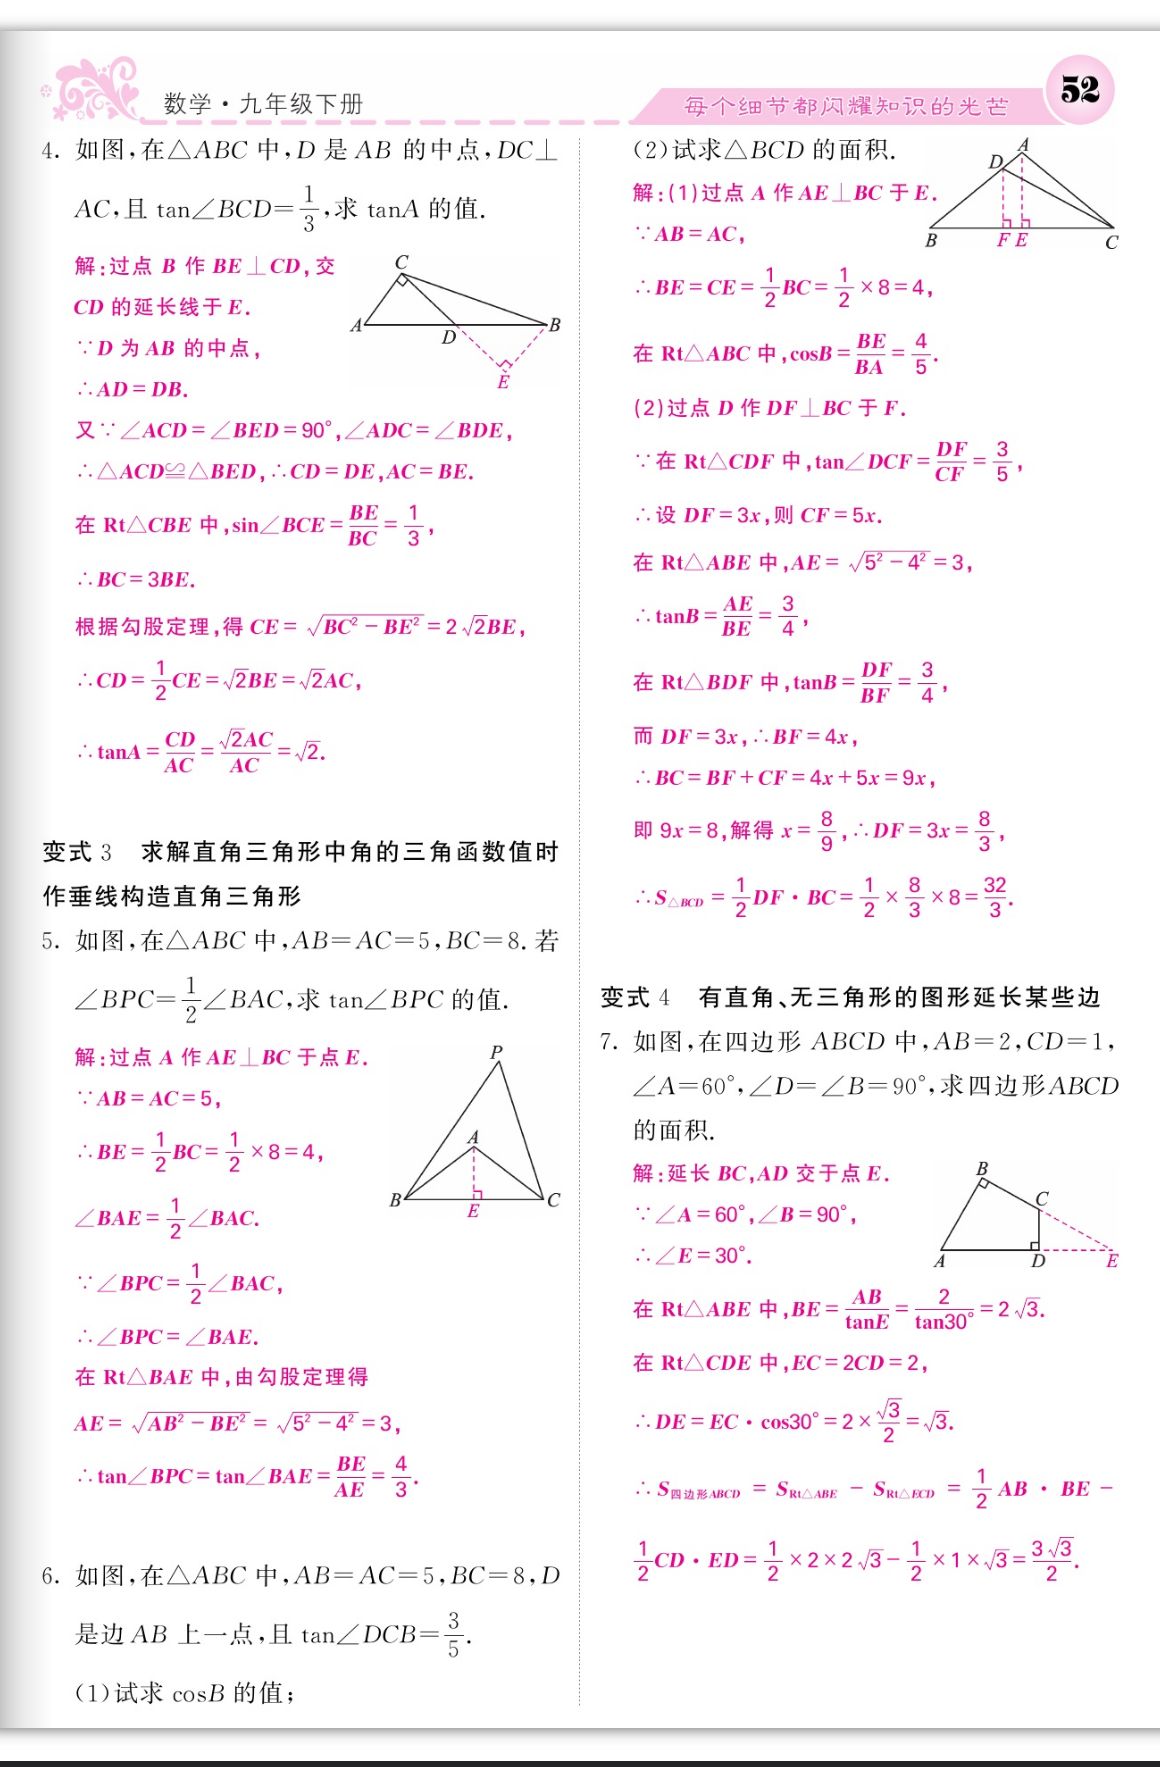 数学·九年级下册
每个细节都闪耀知识的光芒
52
4. 如图,在△ABC 中,D 是 AB 的中点,DC⊥
AC,且 tan∠BCD=1/3,求 tanA 的值.
解:过点 B 作 BE⊥CD,交
CD 的延长线于 E.
∵D 为 AB 的中点,
∴AD=DB.
又∵∠ACD=∠BED=90°,∠ADC=∠BDE,
∴△ACD≌△BED,∴CD=DE,AC=BE.
在 Rt△CBE 中,sin∠BCE=BE/BC=1/3,
∴BC=3BE.
根据勾股定理,得 CE=√(BC²-BE²)=2√2BE,
∴CD=1/2CE=√2BE=√2AC,
∴tanA=CD/AC=√2AC/AC=√2.
C
A
D
B
E
变式 3 求解直角三角形中角的三角函数值时
作垂线构造直角三角形
5. 如图,在△ABC 中,AB=AC=5,BC=8.若
∠BPC=1/2∠BAC,求 tan∠BPC 的值.
解:过点 A 作 AE⊥BC 于点 E.
∵AB=AC=5,
∴BE=1/2BC=1/2×8=4,
∠BAE=1/2∠BAC.
∵∠BPC=1/2∠BAC,
∴∠BPC=∠BAE.
在 Rt△BAE 中,由勾股定理得
AE=√(AB²-BE²)=√(5²-4²)=3,
∴tan∠BPC=tan∠BAE=BE/AE=4/3.
P
A
B
E
C
6. 如图,在△ABC 中,AB=AC=5,BC=8,D
是边 AB 上一点,且 tan∠DCB=3/5.
(1)试求 cosB 的值;
(2)试求△BCD 的面积.
解:(1)过点 A 作 AE⊥BC 于 E.
∵AB=AC,
∴BE=CE=1/2BC=1/2×8=4,
在 Rt△ABC 中,cosB=BE/BA=4/5.
(2)过点 D 作 DF⊥BC 于 F.
∵在 Rt△CDF 中,tan∠DCF=DF/CF=3/5,
∴设 DF=3x,则 CF=5x.
在 Rt△ABE 中,AE=√(5²-4²)=3,
∴tanB=AE/BE=3/4,
在 Rt△BDF 中,tanB=DF/BF=3/4,
而 DF=3x,∴BF=4x,
∴BC=BF+CF=4x+5x=9x,
即 9x=8,解得 x=8/9,∴DF=3x=8/3,
∴S△BCD=1/2DF·BC=1/2×8/3×8=32/3.
A
D
B
F
E
C
变式 4 有直角、无三角形的图形延长某些边
7. 如图,在四边形 ABCD 中,AB=2,CD=1,
∠A=60°,∠D=∠B=90°,求四边形ABCD
的面积.
解:延长 BC,AD 交于点 E.
∵∠A=60°,∠B=90°,
∴∠E=30°.
在 Rt△ABE 中,BE=AB/tanE=2/tan30°=2√3.
在 Rt△CDE 中,EC=2CD=2,
∴DE=EC·cos30°=2×√3/2=√3.
∴S四边形ABCD=SRt△ABE-SRt△ECD=1/2AB·BE-
1/2CD·ED=1/2×2×2√3-1/2×1×√3=3√3/2.
B
C
A
D
E